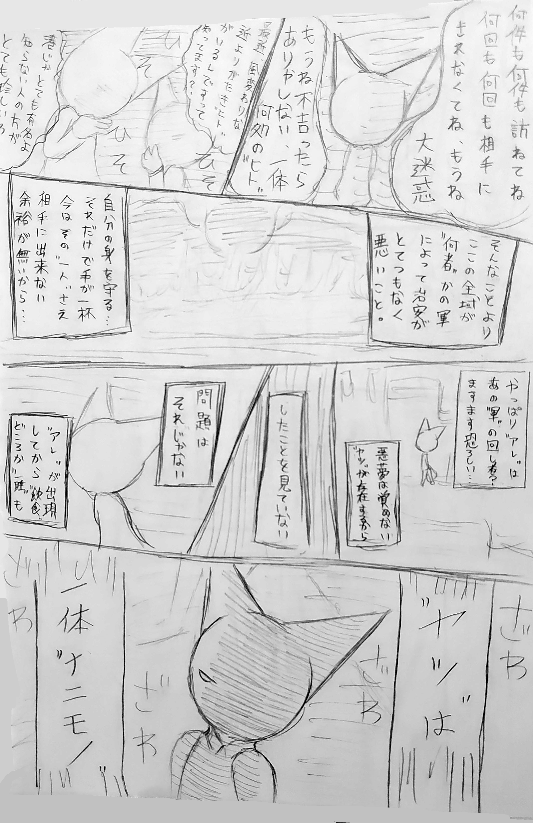 何件も何件も訪ねてね
何回も何回も相手に
きれなくてね、もうね
大迷惑
もうね不吉ったら
ありゃしない、一体
何処のヒト
最近風変わりな
近よりがたきヒト
がいるんですって
知ってます?
ひそ
ひそ
ひそ
知らない人の方が
とても珍しいわ
そんなことより
ここの全域が
“何者”かの軍
によって治安が
とてつもなく
悪いこと。
自分の身を守る…
それだけで手が一杯
今はその“一人”さえ
相手に出来ない
余裕が無いから…
やっぱり“アレ”は
あの“軍”の回し者?
ますます恐ろしい…
悪夢は覚めない
“ヤツ”が存在するから
したことを見ていない
問題は
それじゃない
“アレ”が出現
してから“飲食”
どころか“睡”も
ざわ
“ヤツ”は
ざわ
ざわ
一体“ナニモノ”
ざわ